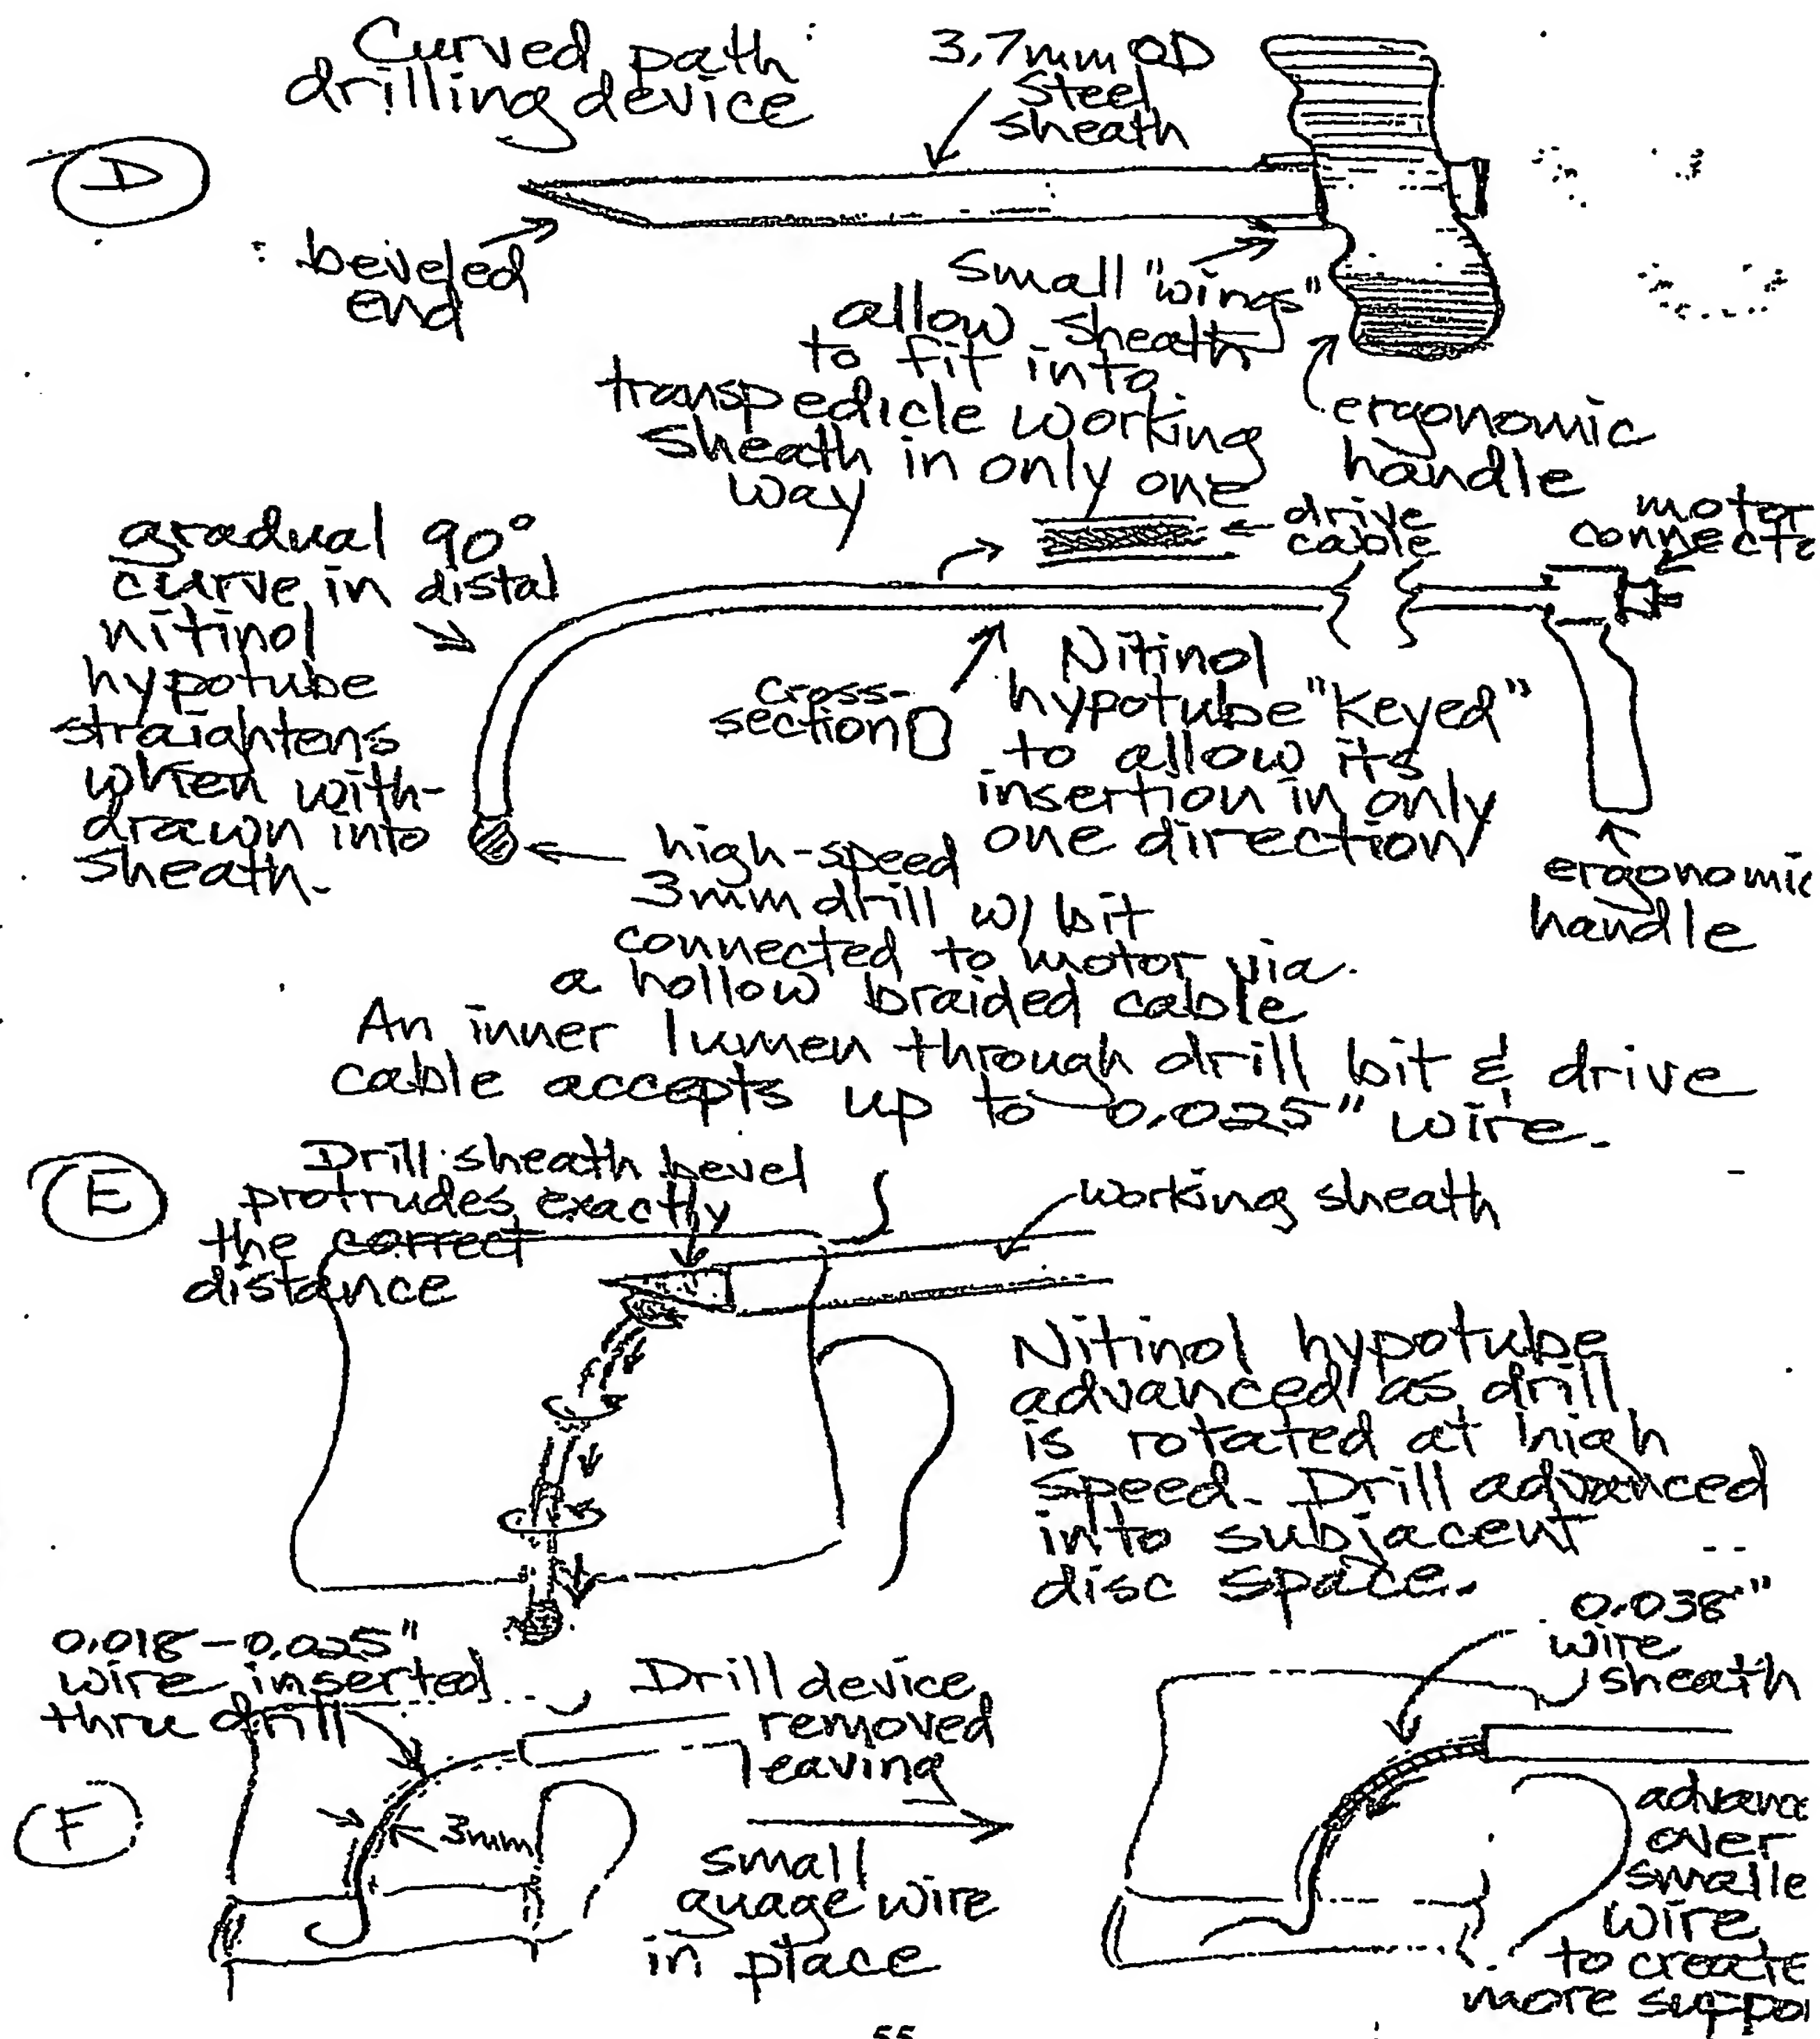 Curved path
drilling device
3.7mm OD
Steel
sheath
D
beveled
end
small "wings"
allow sheath
to fit into
transpedicle working
sheath in only one
way
ergonomic
handle
drive
cable
motor
connecto
gradual 90°
curve in distal
nitinol
hypotube
straightens
when with-
drawn into
sheath.
cross-
section
Nitinol
hypotube "Keyed"
to allow its
insertion in only
one direction
ergonomic
handle
high-speed
3mm drill w/ bit
connected to motor via
a hollow braided cable
An inner lumen through drill bit & drive
cable accepts up to 0.025" wire.
E
Drill sheath bevel
protrudes exactly
the correct
distance
working sheath
Nitinol hypotube
advanced as drill
is rotated at high
speed. Drill advanced
into subjacent
disc space.
F
0.018-0.025"
wire inserted
thru drill
3mm
Drill device
removed
leaving
small
guage wire
in place
0.038"
wire
sheath
advanc
over
smalle
wire
to create
more suppo
55